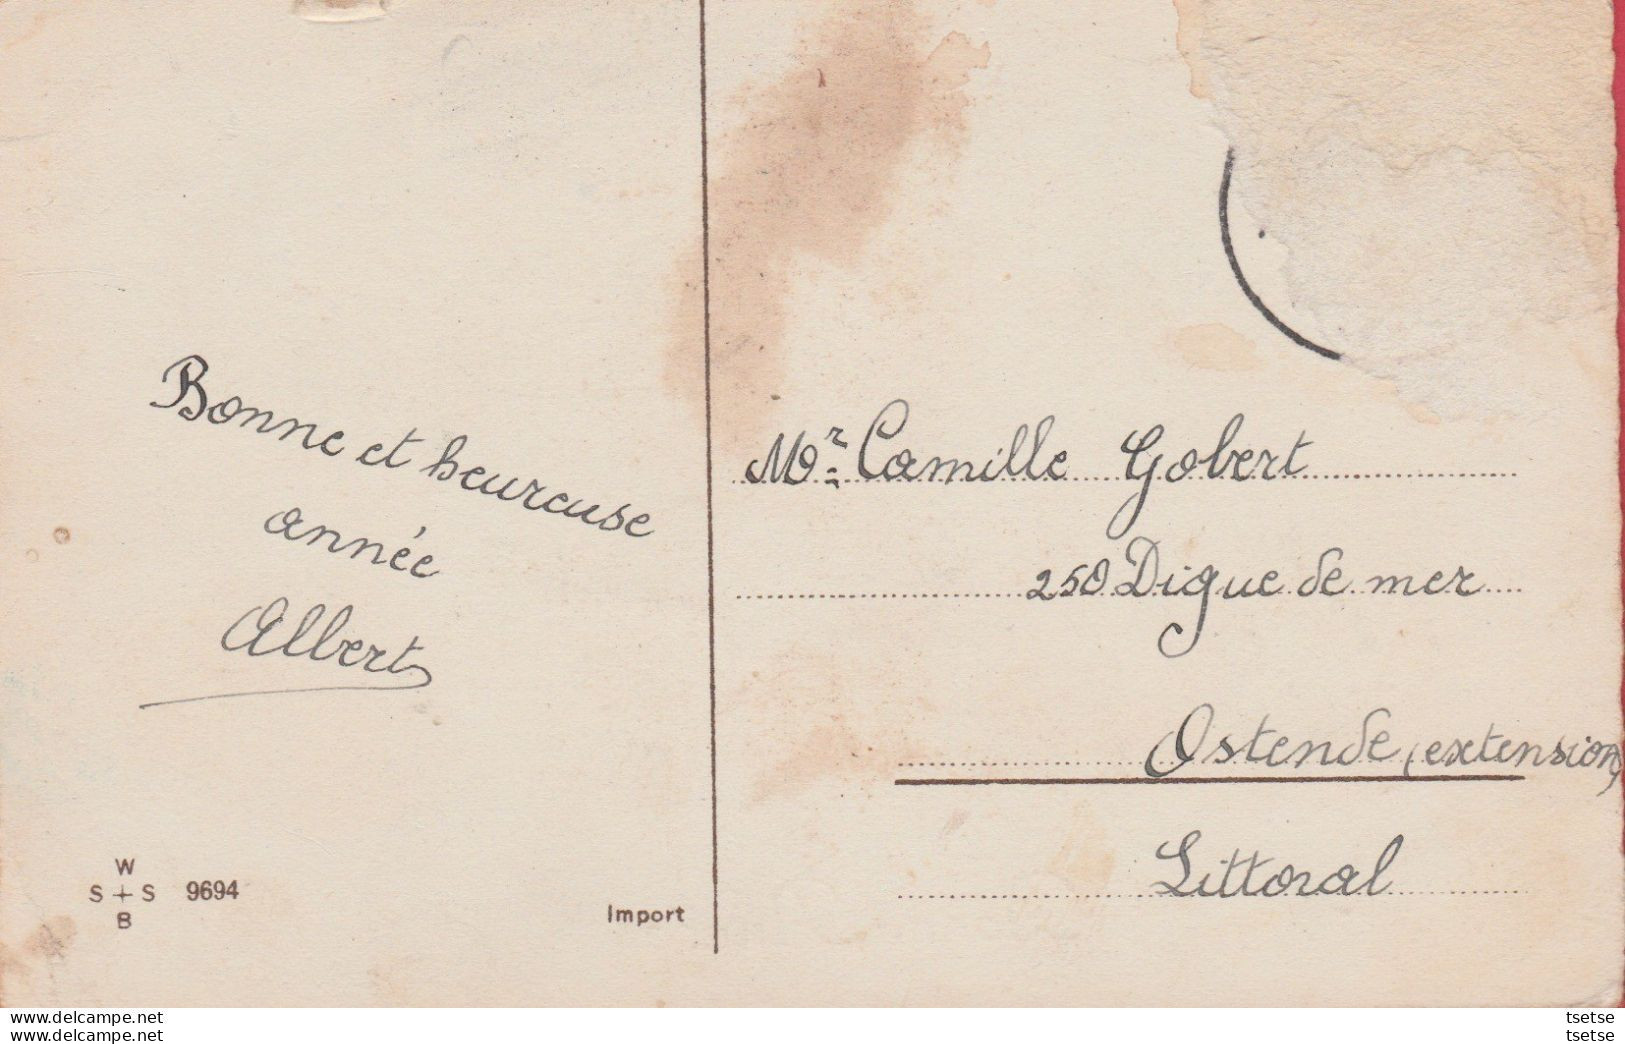 Bonne et heureuse
année
Albert
W
S + S 9694
B
Import
Mr. Camille Gobert
250 Digue de mer
Ostende (extension)
Littoral
www.delcampe.net
www.delcampe.net
tsetse
tsetse